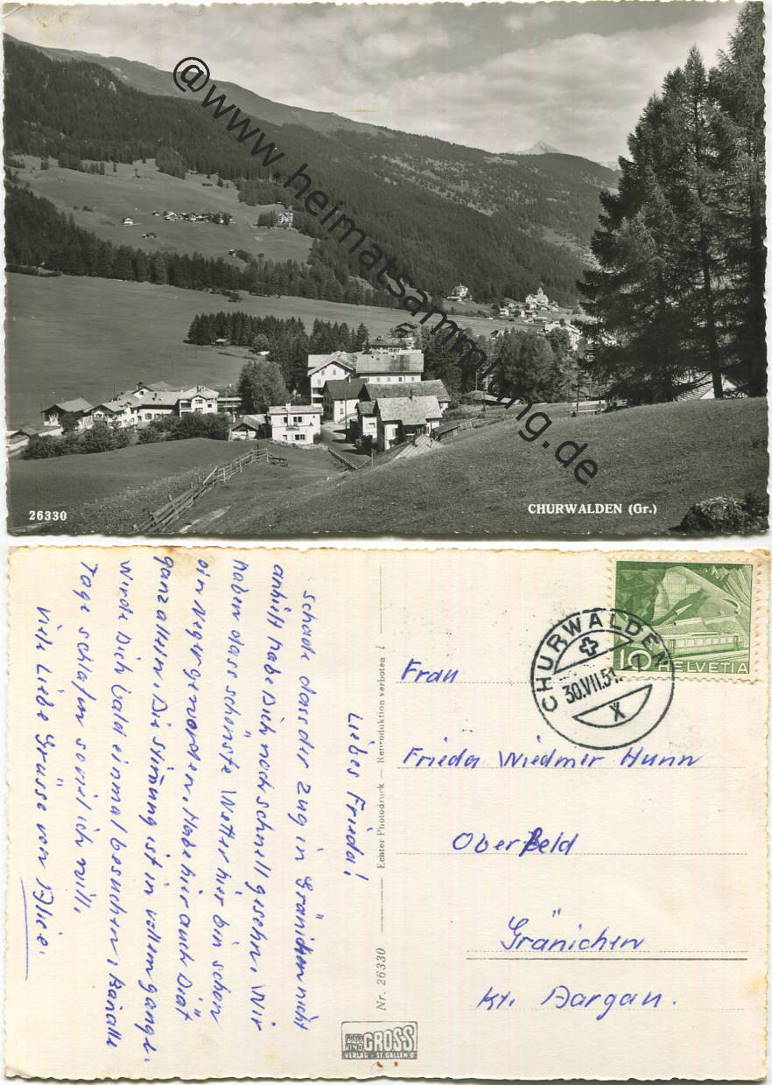 @www.heimatsammlung.de
26330
CHURWALDEN (Gr.)
Liebes Frieda!
Schade dass der Zug in Gränichen nicht
anhält habe Dich noch schnell gesehn. Wir
haben dass schönste Wetter hier bin schon
ein Neger geworden. Habe hier auch Diät
ganz allein. Die Stimung ist in vollem gange.
werde Dich bald einmal besuchen, kann alle
Tage schlafen soviel ich will.
Viele Liebe Grüsse von
Nr. 26330
Echter Photodruck — Reproduktion verboten !
GROSS
VERLAG - ST. GALLEN
CHURWALDEN
30.VII.51.
X
10 HELVETIA
Frau
Frieda Wiedmer Hunn
Oberfeld
Gränichen
Kt. Aargau.